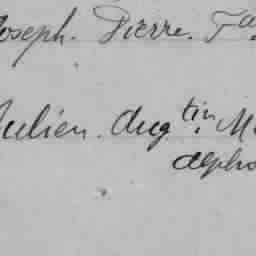 Joseph. Pierre. Fa
Julien. Aug tin. M
alpho